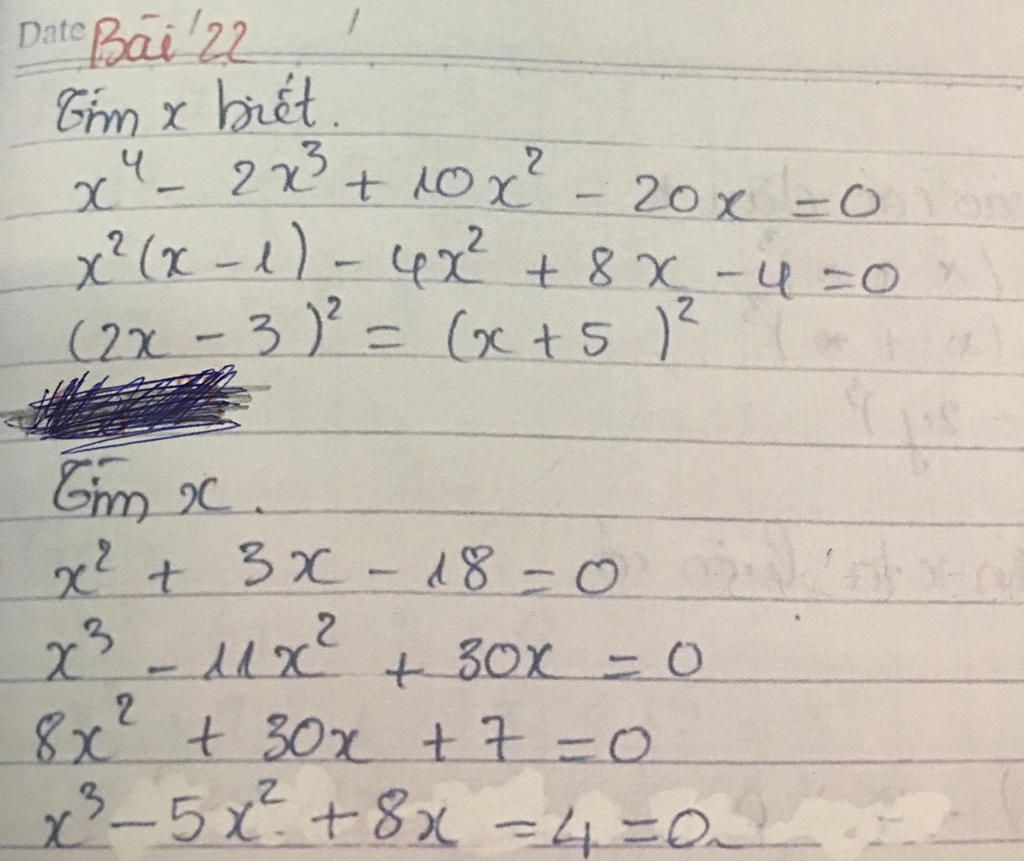 Date Bài 22
Tìm x biết.
x⁴ - 2x³ + 10x² - 20x = 0
x²(x - 1) - 4x² + 8x - 4 = 0
(2x - 3)² = (x + 5)²
Tìm x.
x² + 3x - 18 = 0
x³ - 11x² + 30x = 0
8x² + 30x + 7 = 0
x³ - 5x² + 8x = 4 = 0